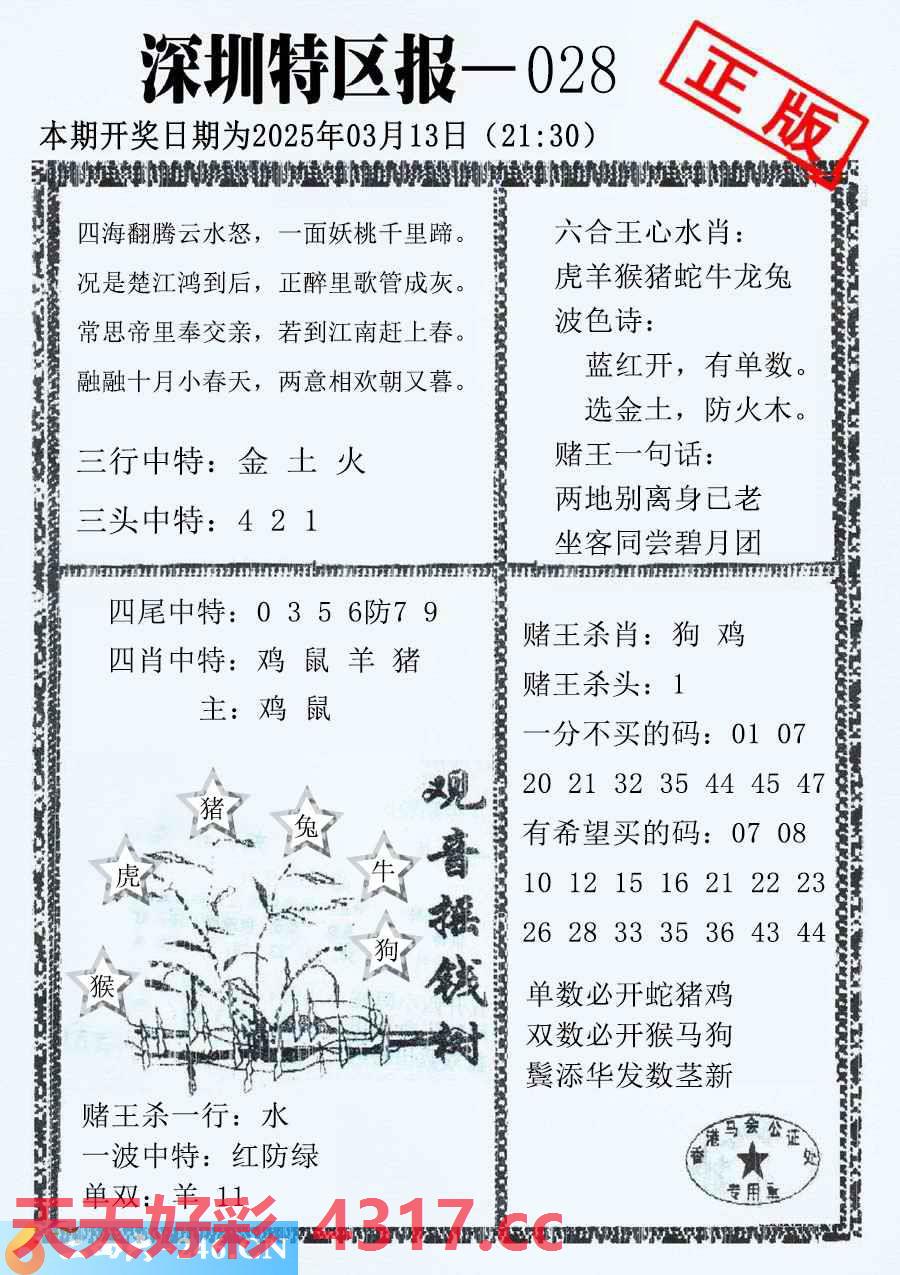 深圳特区报—028
正版
本期开奖日期为2025年03月13日（21:30）
四海翻腾云水怒，一面妖桃千里蹄。
况是楚江鸿到后，正醉里歌管成灰。
常思帝里奉交亲，若到江南赶上春。
融融十月小春天，两意相欢朝又暮。
三行中特：金 土 火
三头中特：4 2 1
六合王心水肖：
虎羊猴猪蛇牛龙兔
波色诗：
蓝红开，有单数。
选金土，防火木。
赌王一句话：
两地别离身已老
坐客同尝碧月团
四尾中特：0 3 5 6防7 9
四肖中特：鸡 鼠 羊 猪
主：鸡 鼠
观音摇钱树
猪
兔
虎
牛
狗
猴
赌王杀一行：水
一波中特：红防绿
单双：羊 11
赌王杀肖：狗 鸡
赌王杀头：1
一分不买的码：01 07
20 21 32 35 44 45 47
有希望买的码：07 08
10 12 15 16 21 22 23
26 28 33 35 36 43 44
单数必开蛇猪鸡
双数必开猴马狗
鬓添华发数茎新
香港马会公证处
专用章
天天好彩 4317.cc